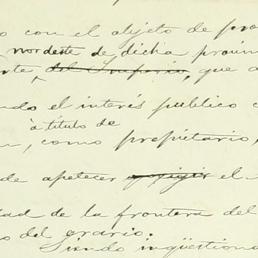 o con el objeto de pro
nordeste de dicha provin
rte, del Imperio, que a
ndo el interés publico c
á titulo de
n, como propietario,
de apetecer exigir el
dad de la frontera del
os del erario.
Siendo inqüestiona